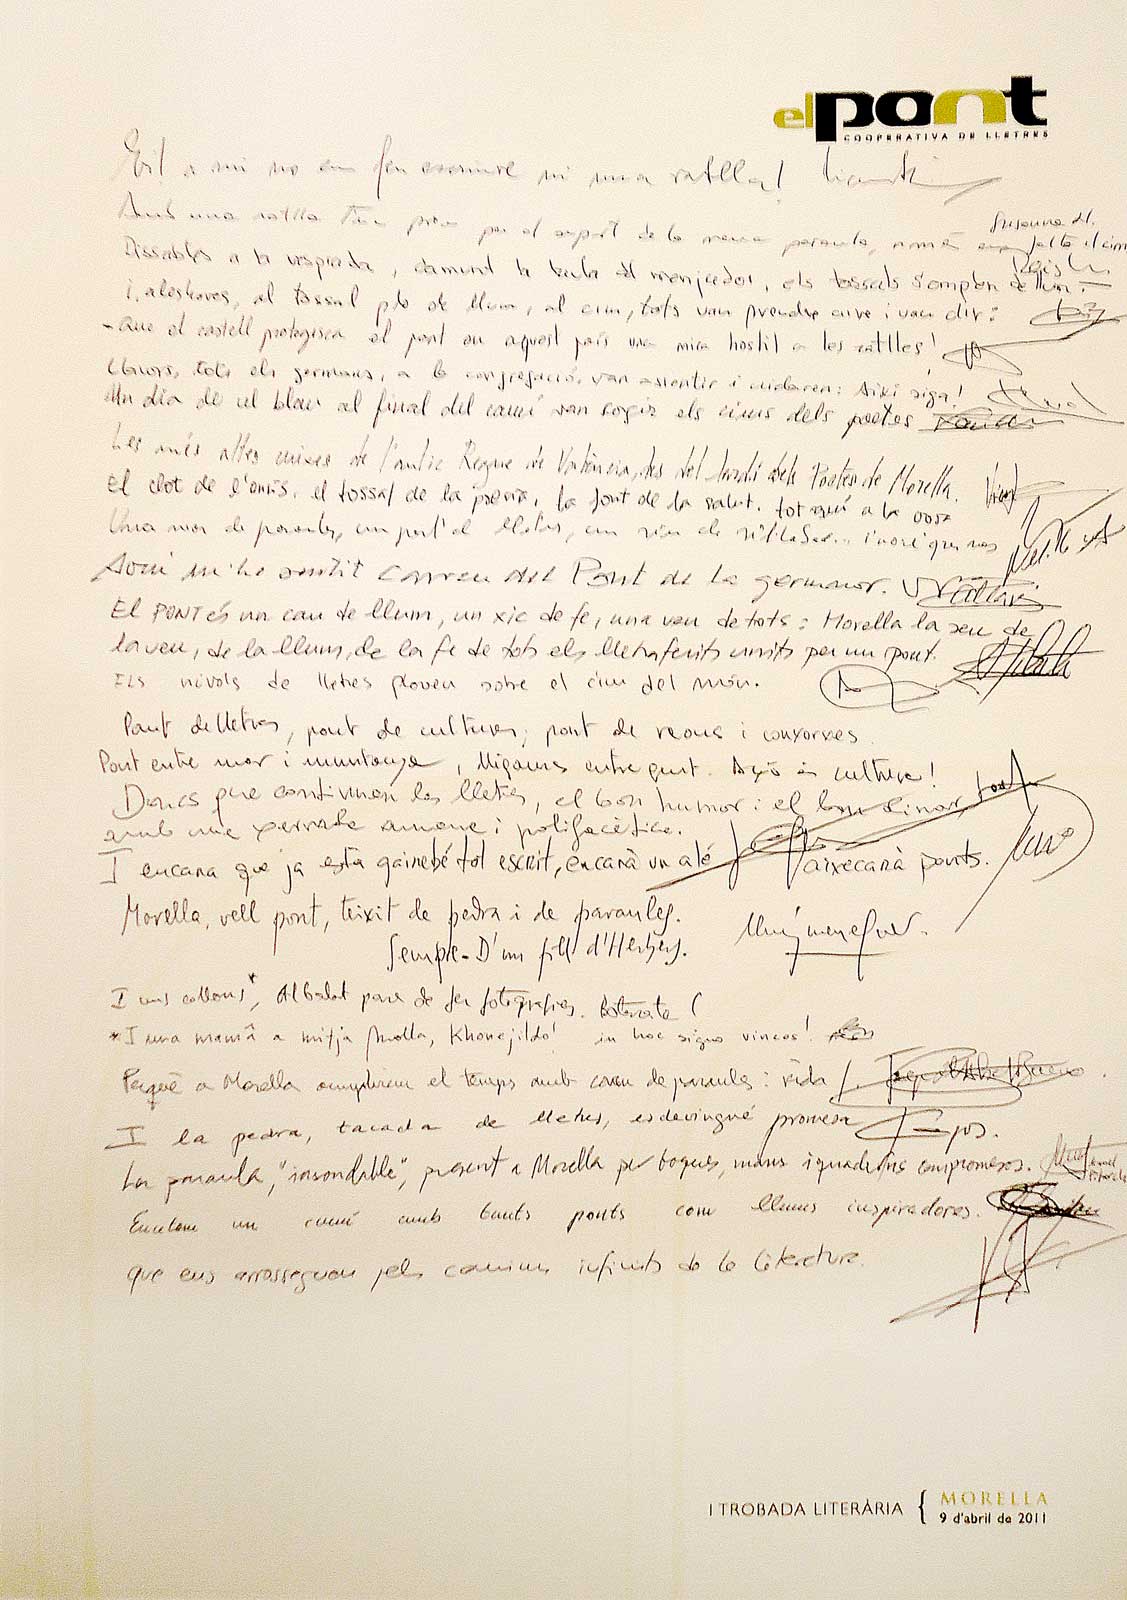 el pont
COOPERATIVA DE LLETRES
a mi no em feu escriure ni una ratlla!
Amb una ratlla prou per al suport de la meva paraula, només em falta el cim
Susanna
Dissabtes a la vesprada, damunt la taula del menjador, els tossals s'omplen de llum.
I, aleshores, al tossal ple de llum, al cim, tots van prendre aire i van dir:
- Que el castell protegisca el pont en aquest país una mica hostil a les ratlles!
Llavors, tots els germans, a la congregació, van assentir i cridaren: Així siga!
Un dia de cel blau al final del camí van collir els cims dels poetes
Les més altes cimes de l'antic Regne de València, des del Jardí dels Poetes de Morella. Vicent
El clot de l'onís, el tossal de la poesia, la font de la salut. tot aquí a la vora
Una mar de paraules, un port de lletres, un riu de
Aquí m'he sentit correu del Pont de la germanor.
El PONT és un cau de llum, un xic de fe, una veu de tots: Morella la seu de
la veu, de la llum, de la fe de tots els lletraferits units per un pont.
Els núvols de lletres plouen sobre el cim del món.
Pont de lletres, pont de cultures, pont de veus i
Pont entre mar i muntanya, lligams entre gent. Açò és cultura!
Doncs que continuen les lletres, el bon humor i el bon dinar, tot
amb una xerrada amena i polifacètica.
I encara que ja està gairebé tot escrit, encara un alé aixecarà ponts.
Morella, vell pont, teixit de pedra i de paraules.
Sempre - D'un fill d'Herbers.
I uns collons*, Albalat para de fer fotografies.
*I una mamà a mitja molla, in hoc signo vinces!
Perquè a Morella omplírem el temps amb coves de paraules: vida
I la pedra, tacada de lletres, esdevingué promesa
La paraula, "insondable", present a Morella per boques, mans i quaderns compromesos.
Encetem un camí amb tants ponts com llums inspiradores.
que ens arrosseguen pels camins infinits de la literatura.
I TROBADA LITERÀRIA { MORELLA
9 d'abril de 2011